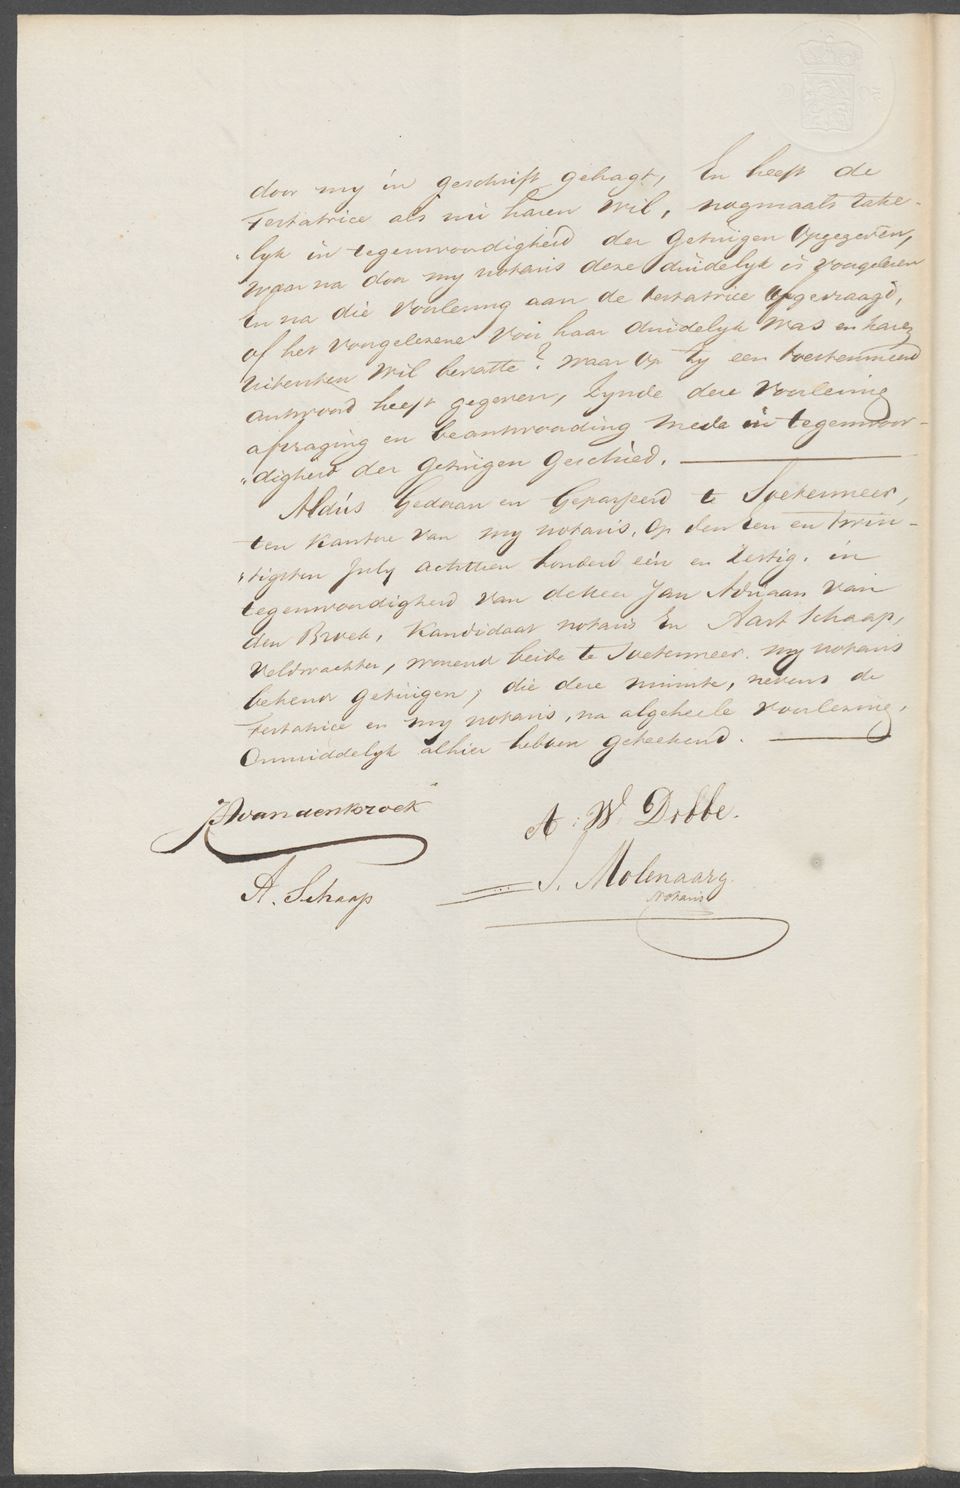 door my in geschrift gebragt, En heeft de
Testatrice als nu haren Wil, nogmaals zake-
„lyk in tegenwoordigheid der getuigen opgegeven,
waar na door my notaris deze duidelyk is voorgelezen
En na die voorlezing aan de testatrice afgevraagd,
of het voorgelezene voor haar duidelyk was en haren
uitersten wil bevatte? waar op zy een toestemmend
antwoord heeft gegeven, zynde deze voorlezing
afvraging en beantwoording mede in tegenwoor-
„digheid der getuigen geschied.
Aldús Gedaan en Gepasseerd te Soetermeer,
ten kantore van my notaris, op den een en twin-
„tigsten July achttien honderd een en zestig, in
tegenwoordigheid van de heer Jan Adriaan van
den Broek, kandidaat notaris En Aart Schaap,
veldwachter, wonend beide te Soetermeer, my notaris
bekend getuigen, die deze minute, nevens de
testatrice en my notaris, na algeheele voorlezing,
Onmiddelyk alhier hebben geteekend.
JAvandenbroek
A. W. Dobbe.
A. Schaap
J. Molenaarg
Notaris
50 C